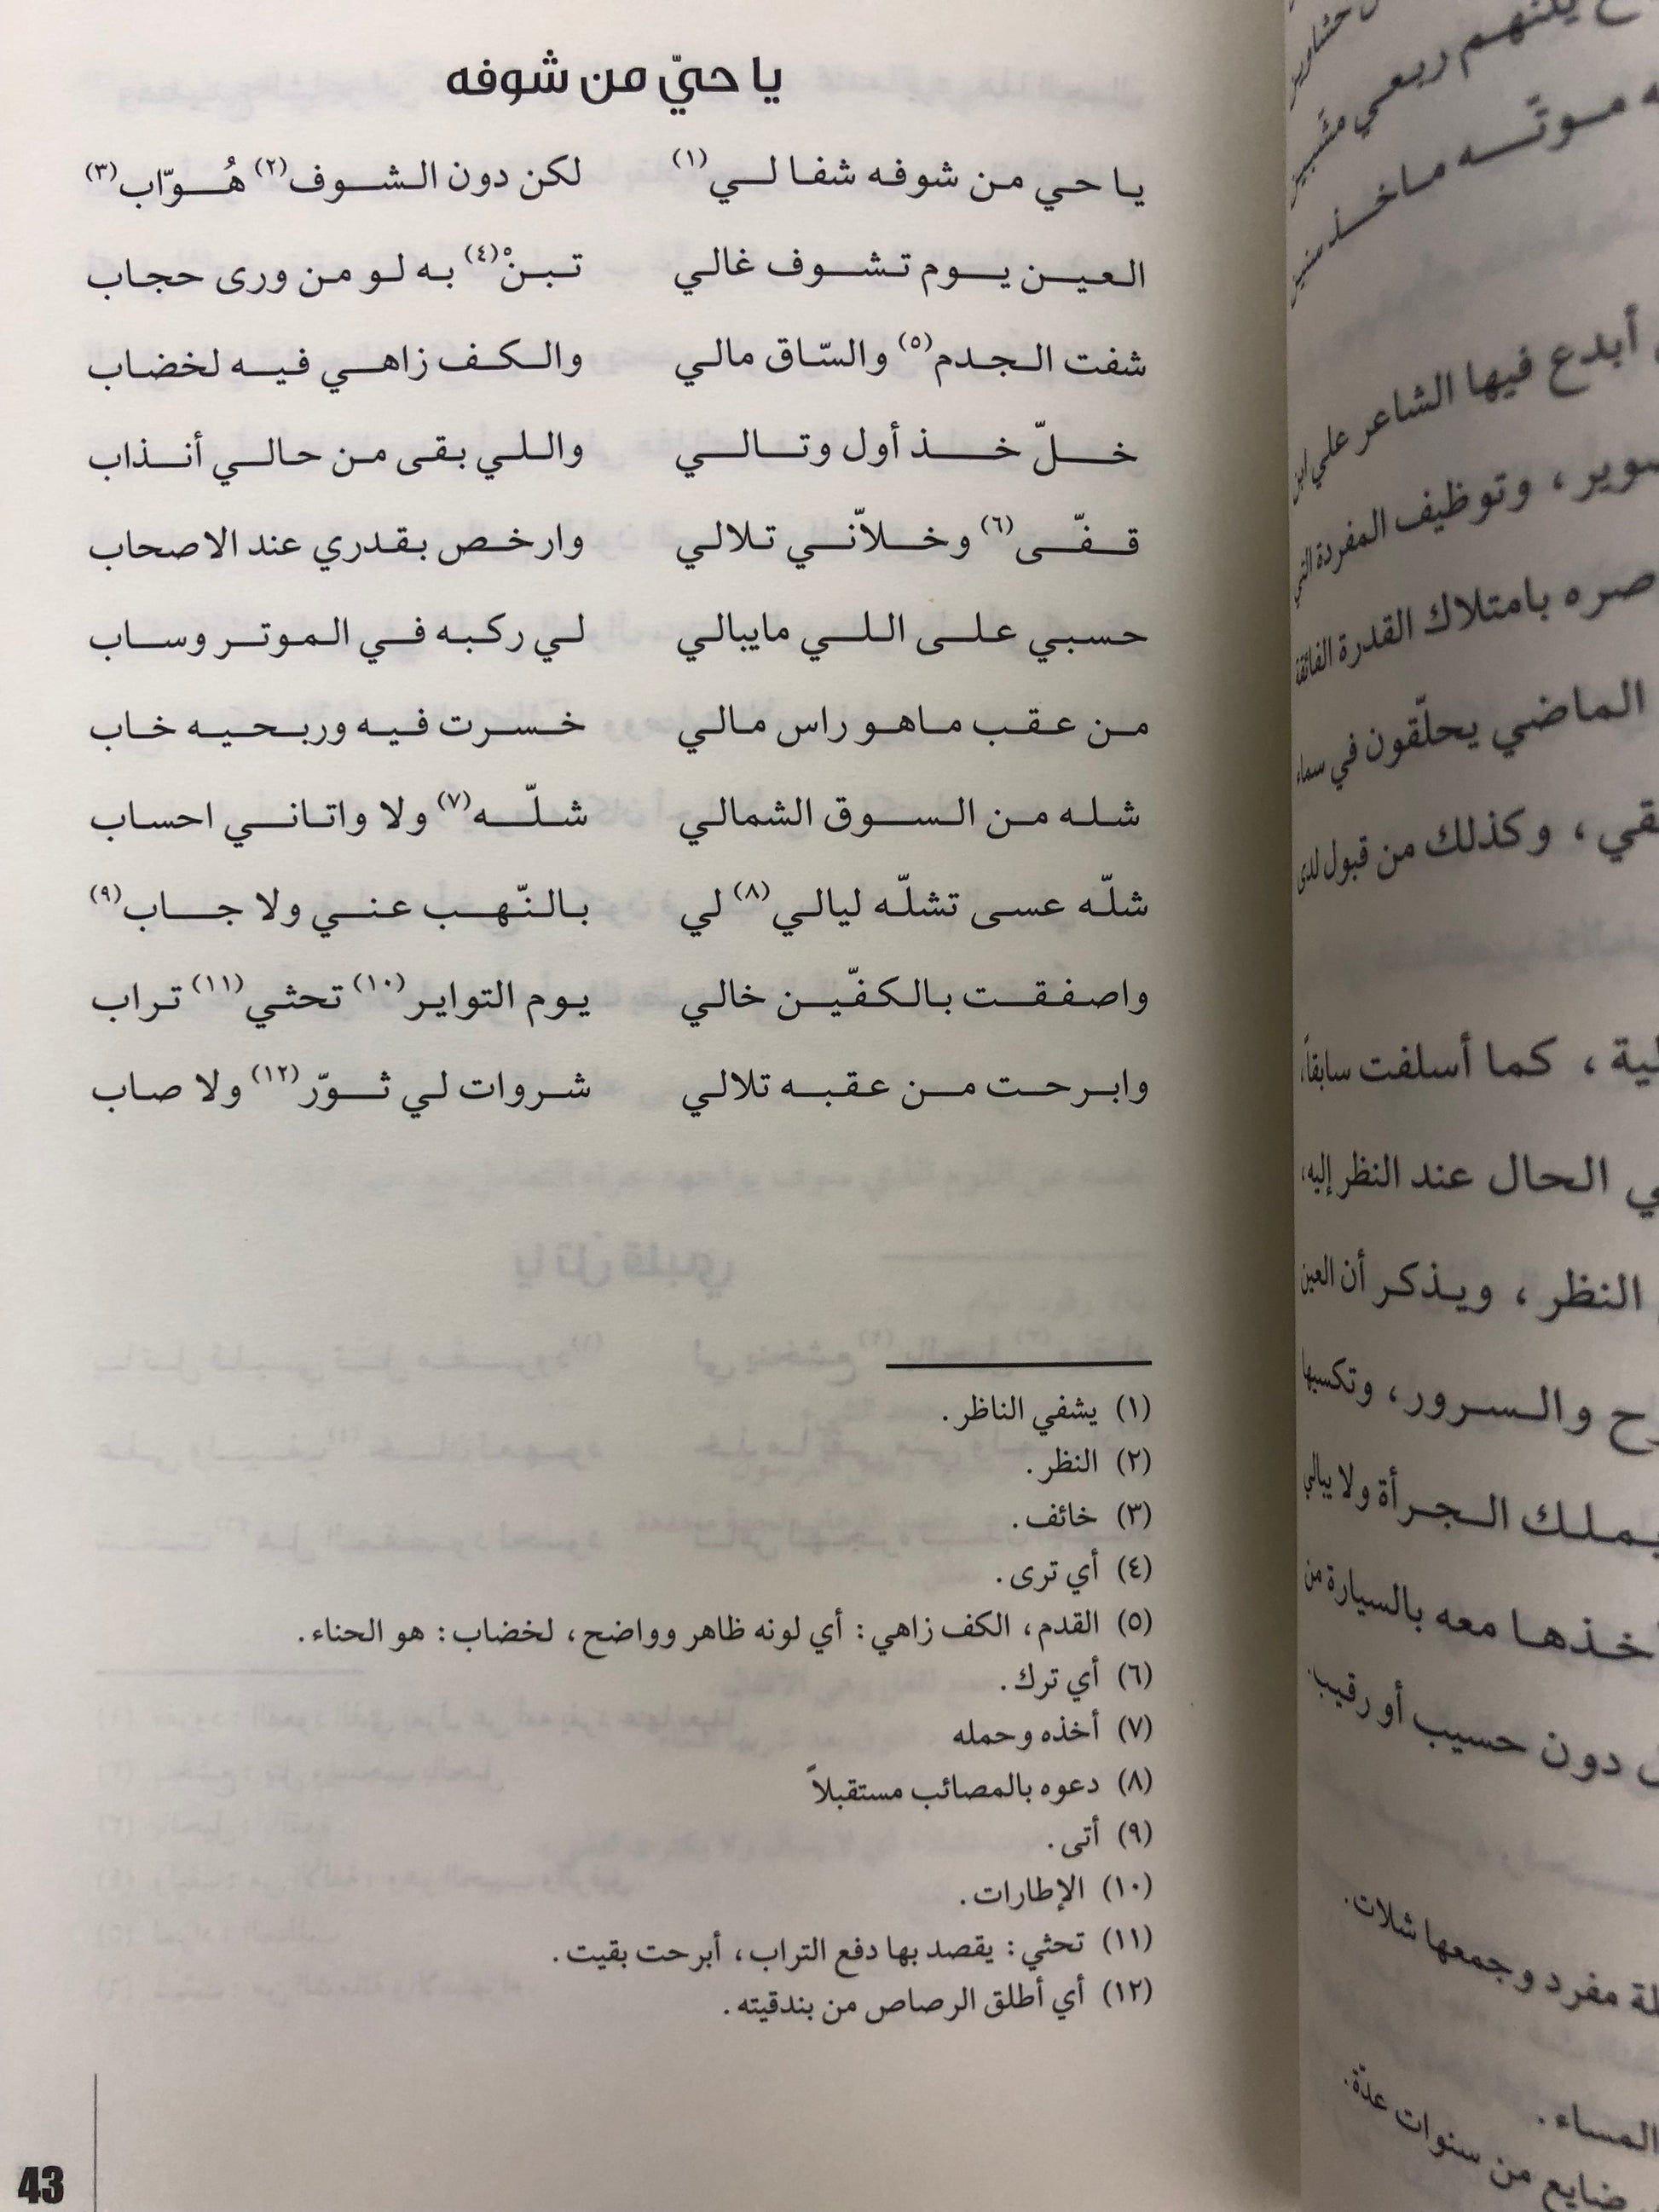 يا حيّ من شوفه
يا حي من شوفه شفا لي(١) لكن دون الشوف(٢) هُوّاب(٣)
العين يوم تشوف غالي تبنْ(٤) به لو من ورى حجاب
شفت الجدم(٥) والسّاق مالي والكف زاهي فيه لخضاب
خلّ خذ أول وتالي واللي بقى من حالي أنذاب
قفّى(٦) وخلاّني تلالي وارخص بقدري عند الاصحاب
حسبي على اللي مايبالي لي ركبه في الموتر وساب
من عقب ماهو راس مالي خسرت فيه وربحيه خاب
شله من السوق الشمالي شلّه(٧) ولا واتاني احساب
شلّه عسى تشلّه ليالي(٨) لي بالنّهب عني ولا جاب(٩)
واصفقت بالكفّين خالي يوم التواير(١٠) تحثي(١١) تراب
وابرحت من عقبه تلالي شروات لي ثوّر(١٢) ولا صاب
(١) يشفي الناظر.
(٢) النظر.
(٣) خائف.
(٤) أي ترى.
(٥) القدم، الكف زاهي: أي لونه ظاهر وواضح، لخضاب: هو الحناء.
(٦) أي ترك.
(٧) أخذه وحمله
(٨) دعوه بالمصائب مستقبلاً
(٩) أتى.
(١٠) الإطارات.
(١١) تحثي: يقصد بها دفع التراب، أبرحت بقيت.
(١٢) أي أطلق الرصاص من بندقيته.
43
يكنهم ربعي مشبير
موتّه ماخذ سنين
أبدع فيها الشاعر علي ابن
وتوظيف المفردة التي
بامتلاك القدرة الفائقة
الماضي يحلّقون في سماء
، وكذلك من قبول لدى
، كما أسلفت سابقاً،
الحال عند النظر إليه،
النظر ، ويذكر أن العين
والسرور، وتكسبها
يملك الجرأة ولا يبالي
معه بالسيارة من
دون حسيب أو رقيب.
مفرد وجمعها شلات.
المساء.
ضايع من سنوات عدّة.